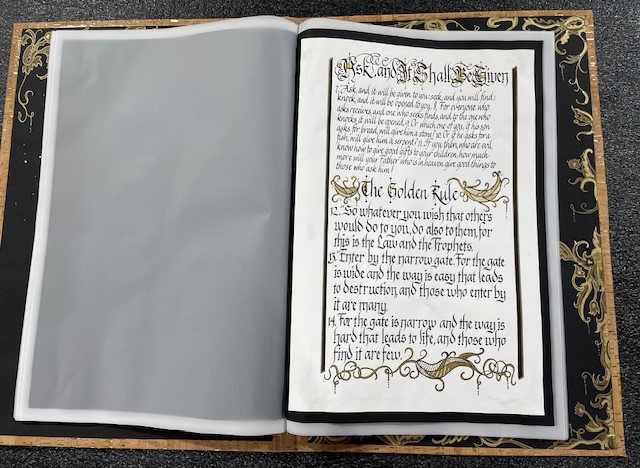 Ask, and It Shall Be Given
7. Ask, and it will be given to you; seek, and you will find;
knock, and it will be opened to you. 8. For everyone who
asks receives, and one who seeks finds, and to the one who
knocks it will be opened. 9. Or which one of you, if his son
asks for bread, will give him a stone? 10. Or if he asks for a
fish, will give him a serpent? 11. If you then, who are evil,
know how to give good gifts to your children, how much
more will your Father who is in heaven give good things to
those who ask him!
The Golden Rule
12. "So whatever you wish that others
would do to you, do also to them, for
this is the Law and the Prophets.
13. Enter by the narrow gate. For the gate
is wide and the way is easy that leads
to destruction, and those who enter by
it are many.
14. For the gate is narrow and the way is
hard that leads to life, and those who
find it are few.